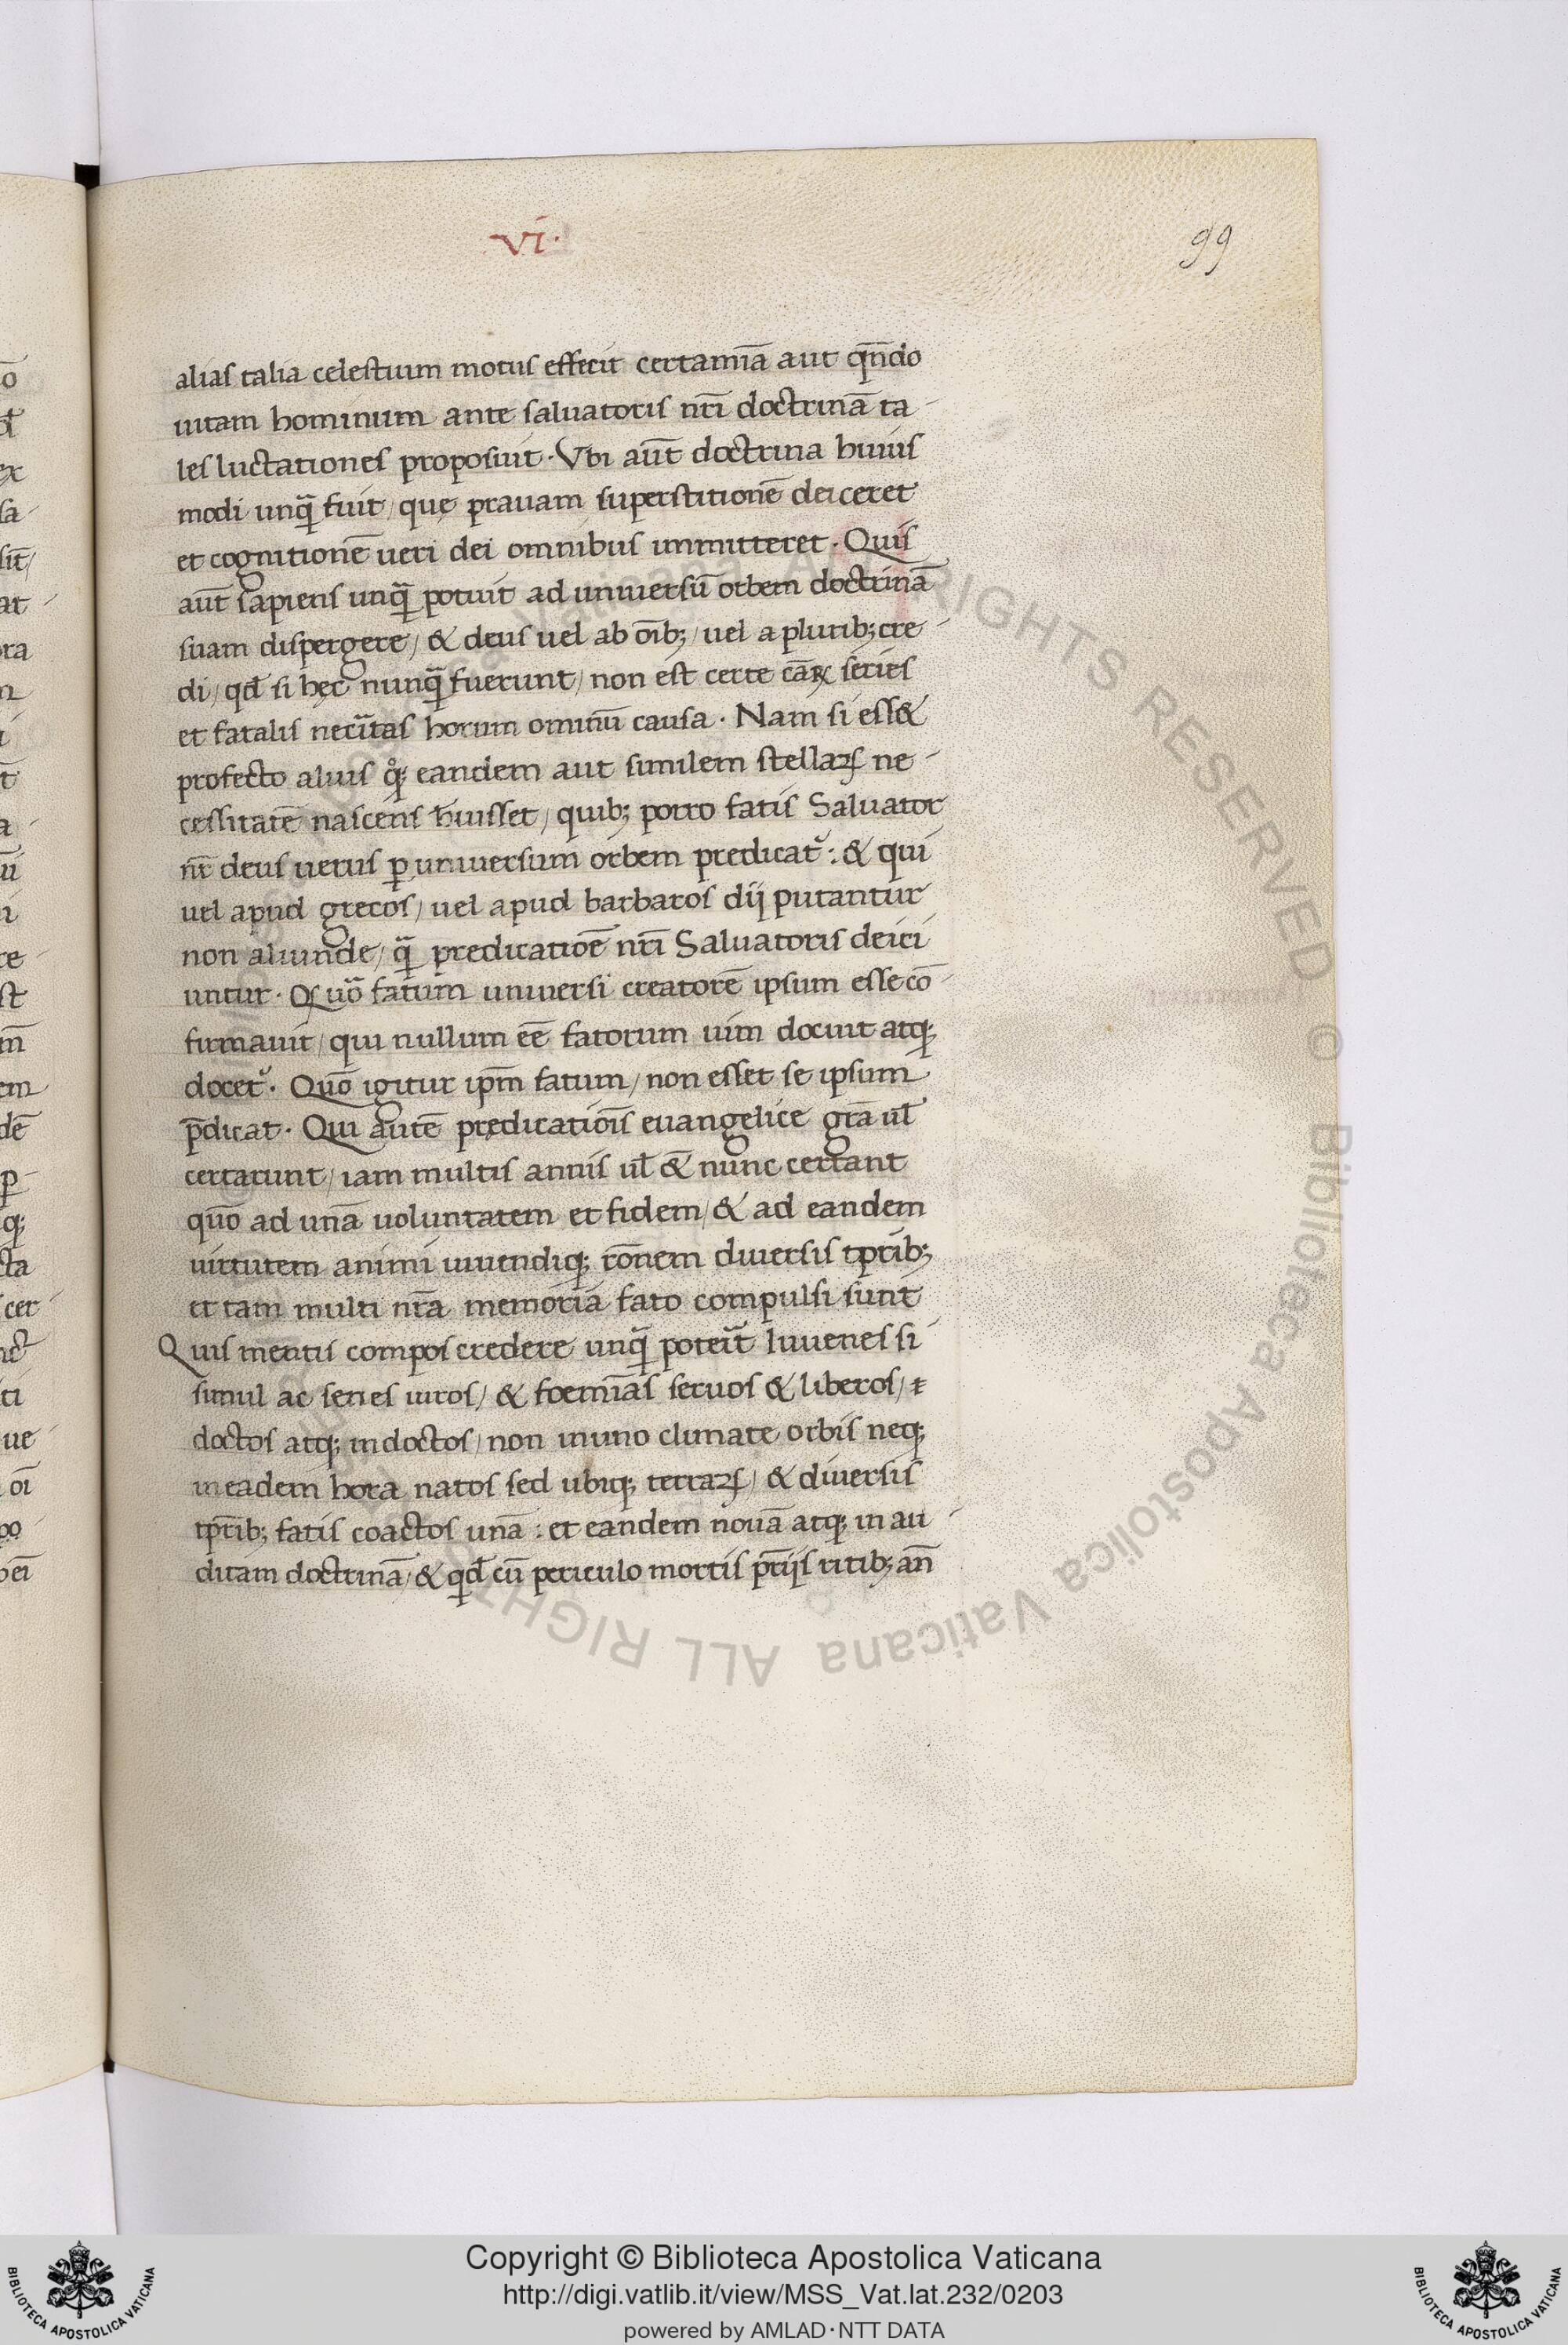 VI·
99
alias talia celestium motus effecit certamīa aut qn̄do
uitam hominum ante saluatoris nr̄i doctrinā ta-
les luctationes proposuit. Vbi aūt doctrina huius
modi unq̄ fuit/ que prauam superstitionē deiceret
et cognitionē ueri dei omnibus immitteret. Quis
aūt sapiens unq̄ potuit ad uniuersū orbem doctrinā
suam dispergere/ & deus uel ab oīb;/ uel a plurib; cre-
di/ qđ si hęc nunq̄ fuerunt/ non est certe cāꝝ series
et fatalis necītas horum ominū causa. Nam si ess&
profecto aliuis q̊; eandem aut similem stellaꝝ ne-
cessitatē nascens h̄uisset/ quib; porro fatis Saluator
nr̄ deus uerus ꝑ uniuersum orbem predicat᷑: & qui
uel apud grecos/ uel apud barbaros dij putantur
non aliunde/ q̄ predicatiōe nr̄i Saluatoris deici
untur. Quō fatum uniuersi creatorē ipsum esse cō-
firmauit/ qui nullum eē fatorum uim docuit atq;
docet᷑. Quō igitur ip̄m fatum/ non esset se ipsum
p̄dicat. Qui autē prędicatiōis euangelice gr̄a ul̄
certarunt/ iam multis annis ul̄ & nunc certant
quō ad unā uoluntatem et fidem/ & ad eandem
uirtutem animi uiuendiq; rōnem diuersis tp̄rib;
et tam multi nr̄a memoria fato compulsi sunt
Quis mentis compos credere unq̄ poterit Iuuenes si
simul ac senes uiros/ & foemīas seruos & liberos/ ⁊
doctos atq; indoctos/ non in uno climate orbis neq;
in eadem hora natos sed ubiq; terraꝝ/ & diuersis
tp̄rib; fatis coactos unā: et eandem nouā atq; in au-
ditam doctrinā/ & qđ cū periculo mortis pr̄ijs ritib; an̄
Copyright © Biblioteca Apostolica Vaticana
http://digi.vatlib.it/view/MSS_Vat.lat.232/0203
powered by AMLAD·NTT DATA